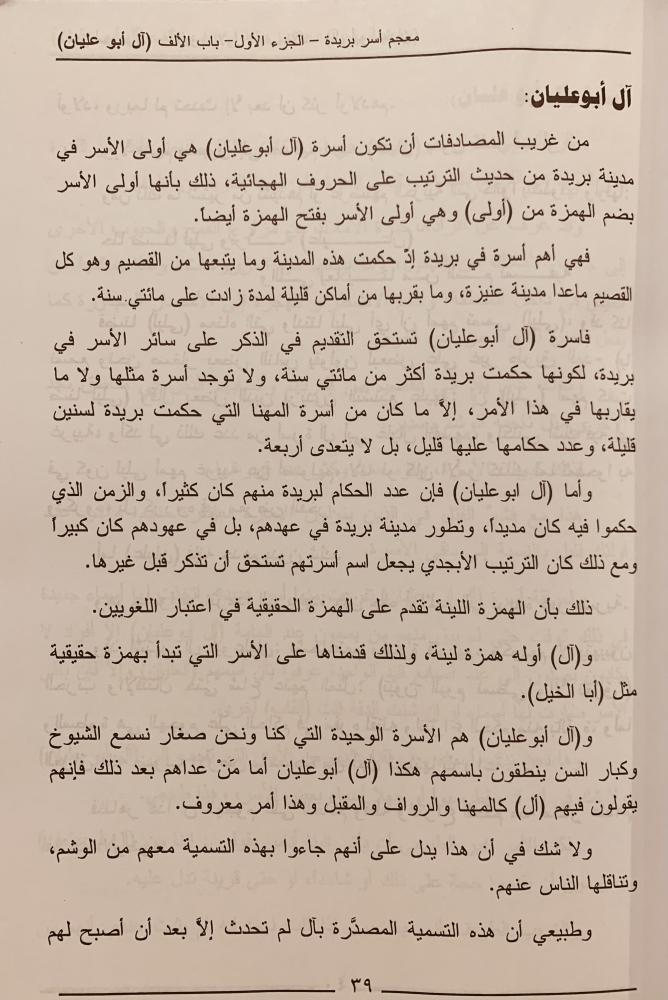 معجم أسر بريدة - الجزء الأول- باب الألف (آل أبو عليان)
آل أبوعليان:
من غريب المصادفات أن تكون أسرة (آل أبوعليان) هي أولى الأسر في
مدينة بريدة من حديث الترتيب على الحروف الهجائية، ذلك بأنها أولى الأسر
بضم الهمزة من (أولى) وهي أولى الأسر بفتح الهمزة أيضاً.
فهي أهم أسرة في بريدة إذْ حكمت هذه المدينة وما يتبعها من القصيم وهو كل
القصيم ماعدا مدينة عنيزة، وما بقربها من أماكن قليلة لمدة زادت على مائتي سنة.
فاسرة (آل أبوعليان) تستحق التقديم في الذكر على سائر الأسر في
بريدة، لكونها حكمت بريدة أكثر من مائتي سنة، ولا توجد أسرة مثلها ولا ما
يقاربها في هذا الأمر، إلاَّ ما كان من أسرة المهنا التي حكمت بريدة لسنين
قليلة، وعدد حكامها عليها قليل، بل لا يتعدى أربعة.
وأما (آل ابوعليان) فإن عدد الحكام لبريدة منهم كان كثيراً، والزمن الذي
حكموا فيه كان مديداً، وتطور مدينة بريدة في عهدهم، بل في عهودهم كان كبيراً
ومع ذلك كان الترتيب الأبجدي يجعل اسم أسرتهم تستحق أن تذكر قبل غيرها.
ذلك بأن الهمزة اللينة تقدم على الهمزة الحقيقية في اعتبار اللغويين.
و(آل) أوله همزة لينة، ولذلك قدمناها على الأسر التي تبدأ بهمزة حقيقية
مثل (أبا الخيل).
و(آل أبوعليان) هم الأسرة الوحيدة التي كنا ونحن صغار نسمع الشيوخ
وكبار السن ينطقون باسمهم هكذا (آل) أبوعليان أما مَنْ عداهم بعد ذلك فإنهم
يقولون فيهم (أل) كالمهنا والرواف والمقبل وهذا أمر معروف.
ولا شك في أن هذا يدل على أنهم جاءوا بهذه التسمية معهم من الوشم،
وتناقلها الناس عنهم.
وطبيعي أن هذه التسمية المصدَّرة بآل لم تحدث إلاَّ بعد أن أصبح لهم
٣٩